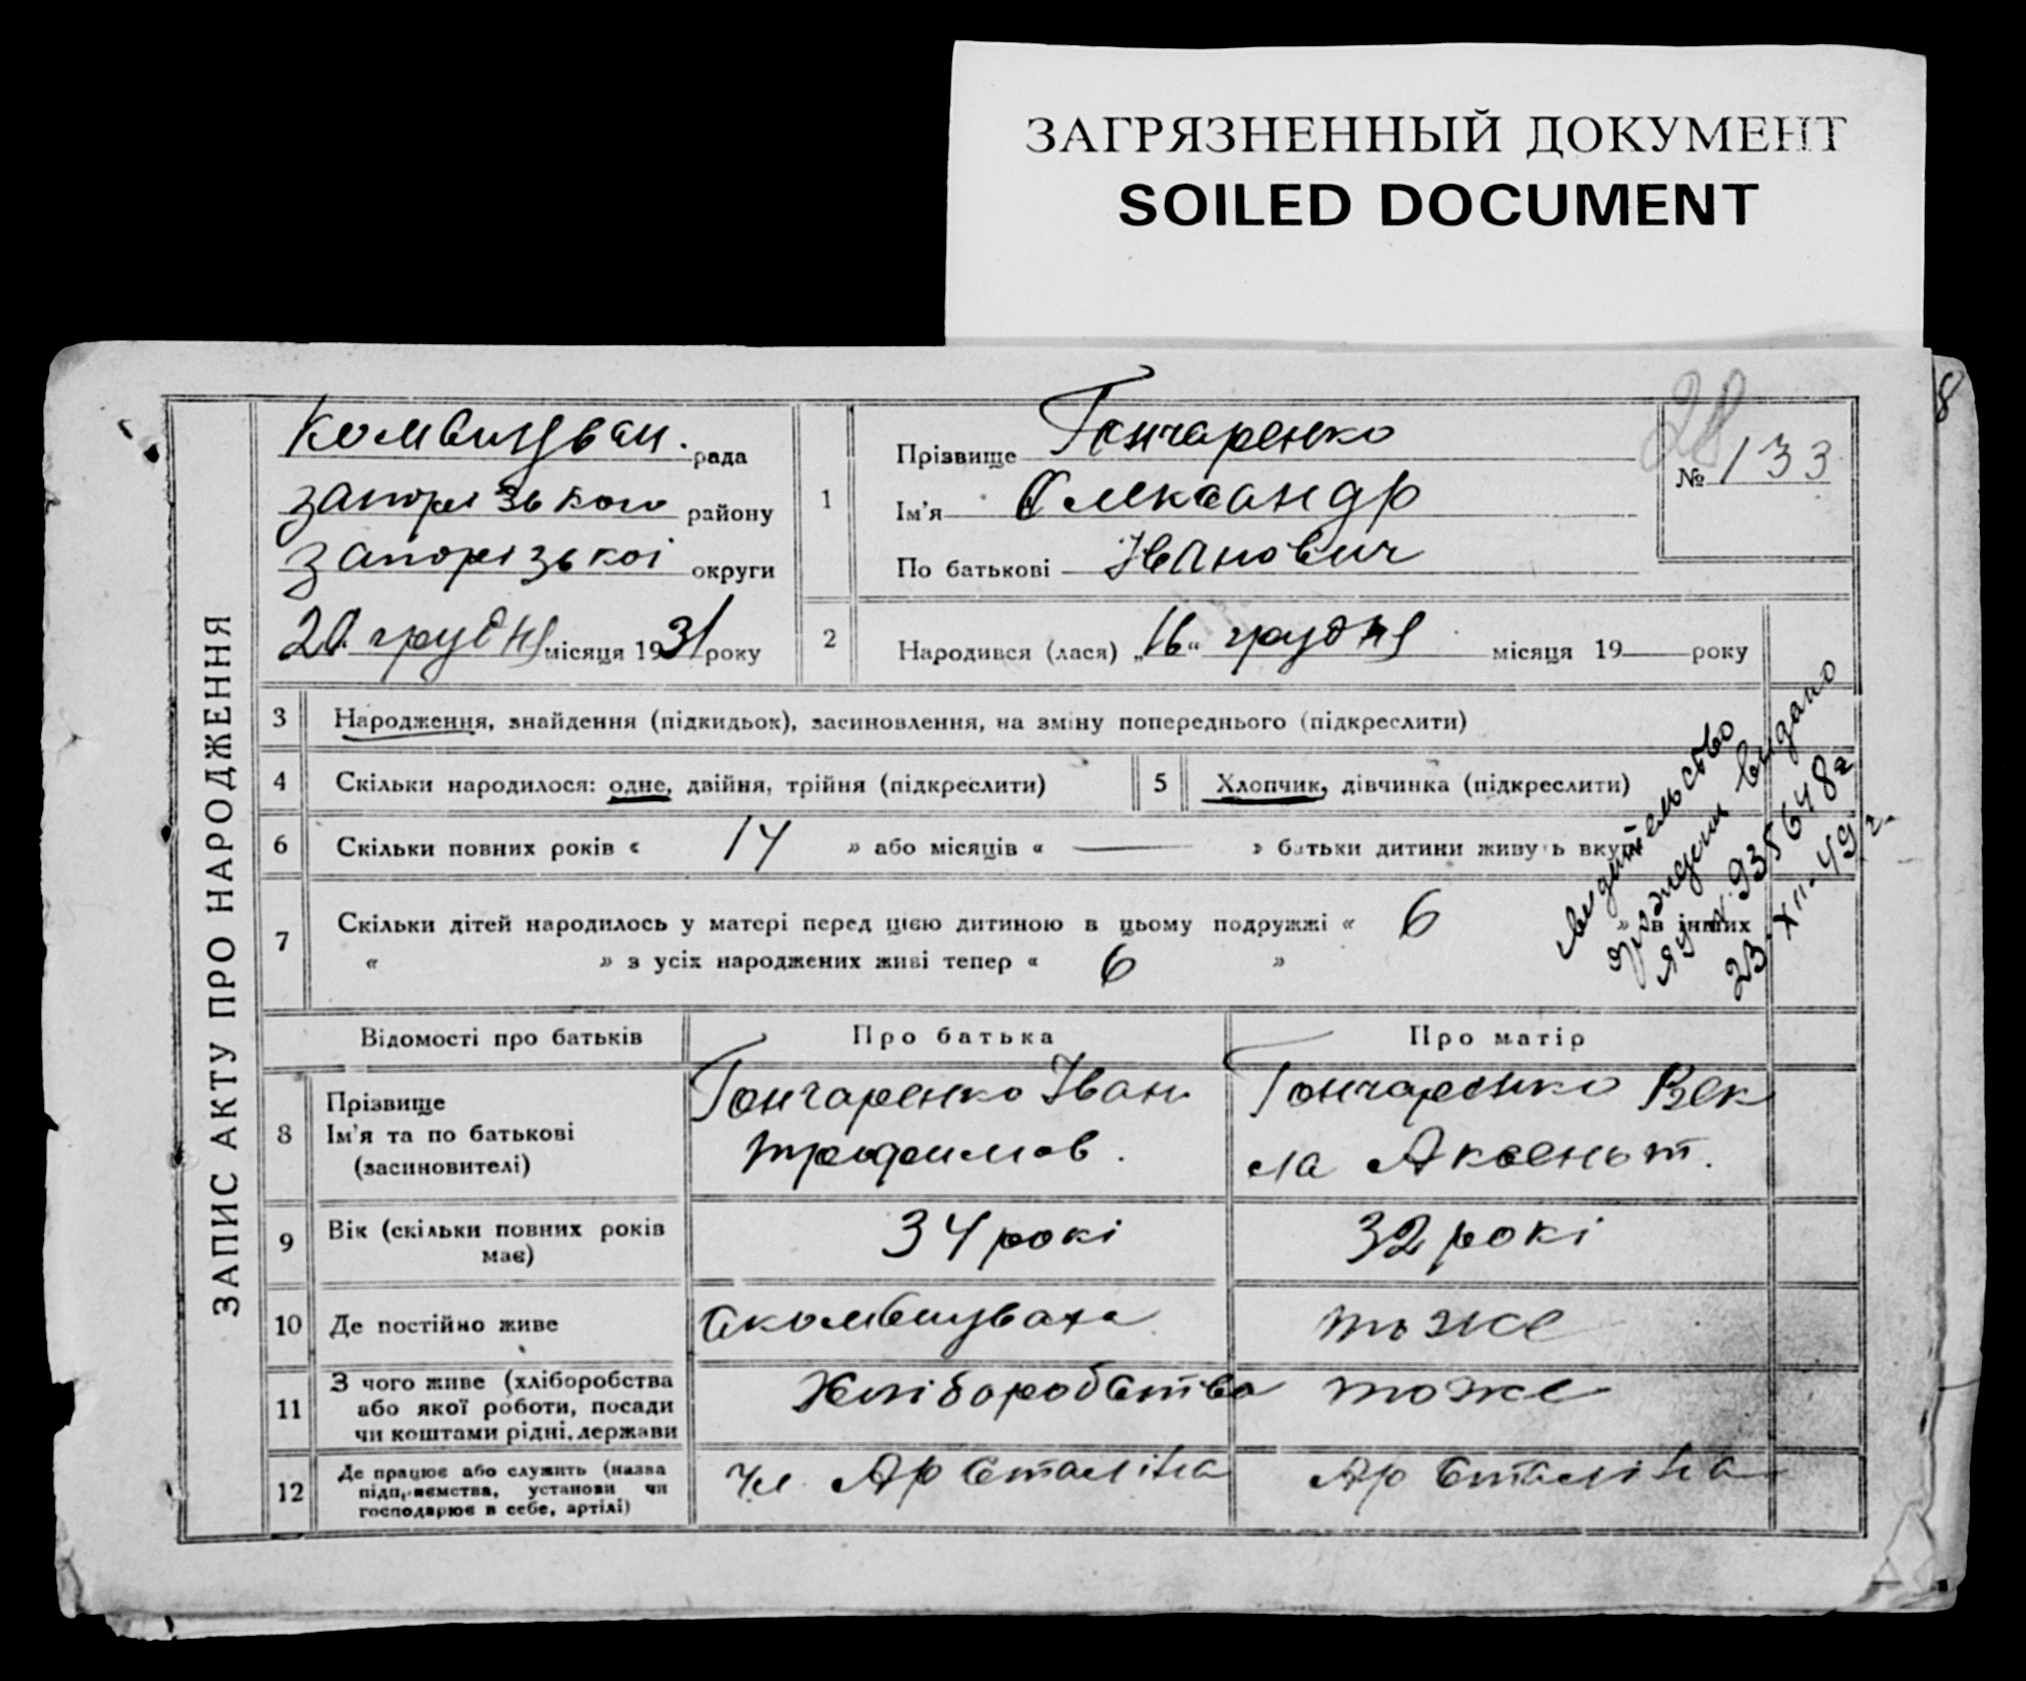 ЗАГРЯЗНЕННЫЙ ДОКУМЕНТ
SOILED DOCUMENT
8
ЗАПИС АКТУ ПРО НАРОДЖЕННЯ
Комишуван. рада
запорізького району
запорізькоі округи
20 грудня місяця 1931 року
28
№ 133
1
Прізвище Гончаренко
Ім'я Олександр
По батькові Іванович
2 Народився (лася) „16“ грудня місяця 19 року
3 Народження, знайдення (підкидьок), засиновлення, на зміну попереднього (підкреслити)
4 Скільки народилося: одне, двійня, трійня (підкреслити)
5 Хлопчик, дівчинка (підкреслити)
6 Скільки повних років « 14 » або місяців « — » батьки дитини живуть вкупі
7 Скільки дітей народилось у матері перед цією дитиною в цьому подружжі « 6 » в інших
« » з усіх народжених живі тепер « 6 »
видано
ЯУ № 935648
23-XII-49 г.
Відомості про батьків Про батька Про матір
8 Прізвище
Ім'я та по батькові
(засиновителі)
Гончаренко Іван
трофимов.
Гончаренко Век
ла Аксеньт.
9 Вік (скільки повних років
має)
34 рокі
32 рокі
10 Де постійно живе
тоже
11 З чого живе (хліборобства
або якої роботи, посади
чи коштами рідні, держави
Хліборобства
тоже
12 Де працює або служить (назва
підприємства, установи чи
господарює в себе, артілі)
чл. Ар Сталіна
Ар Сталіна